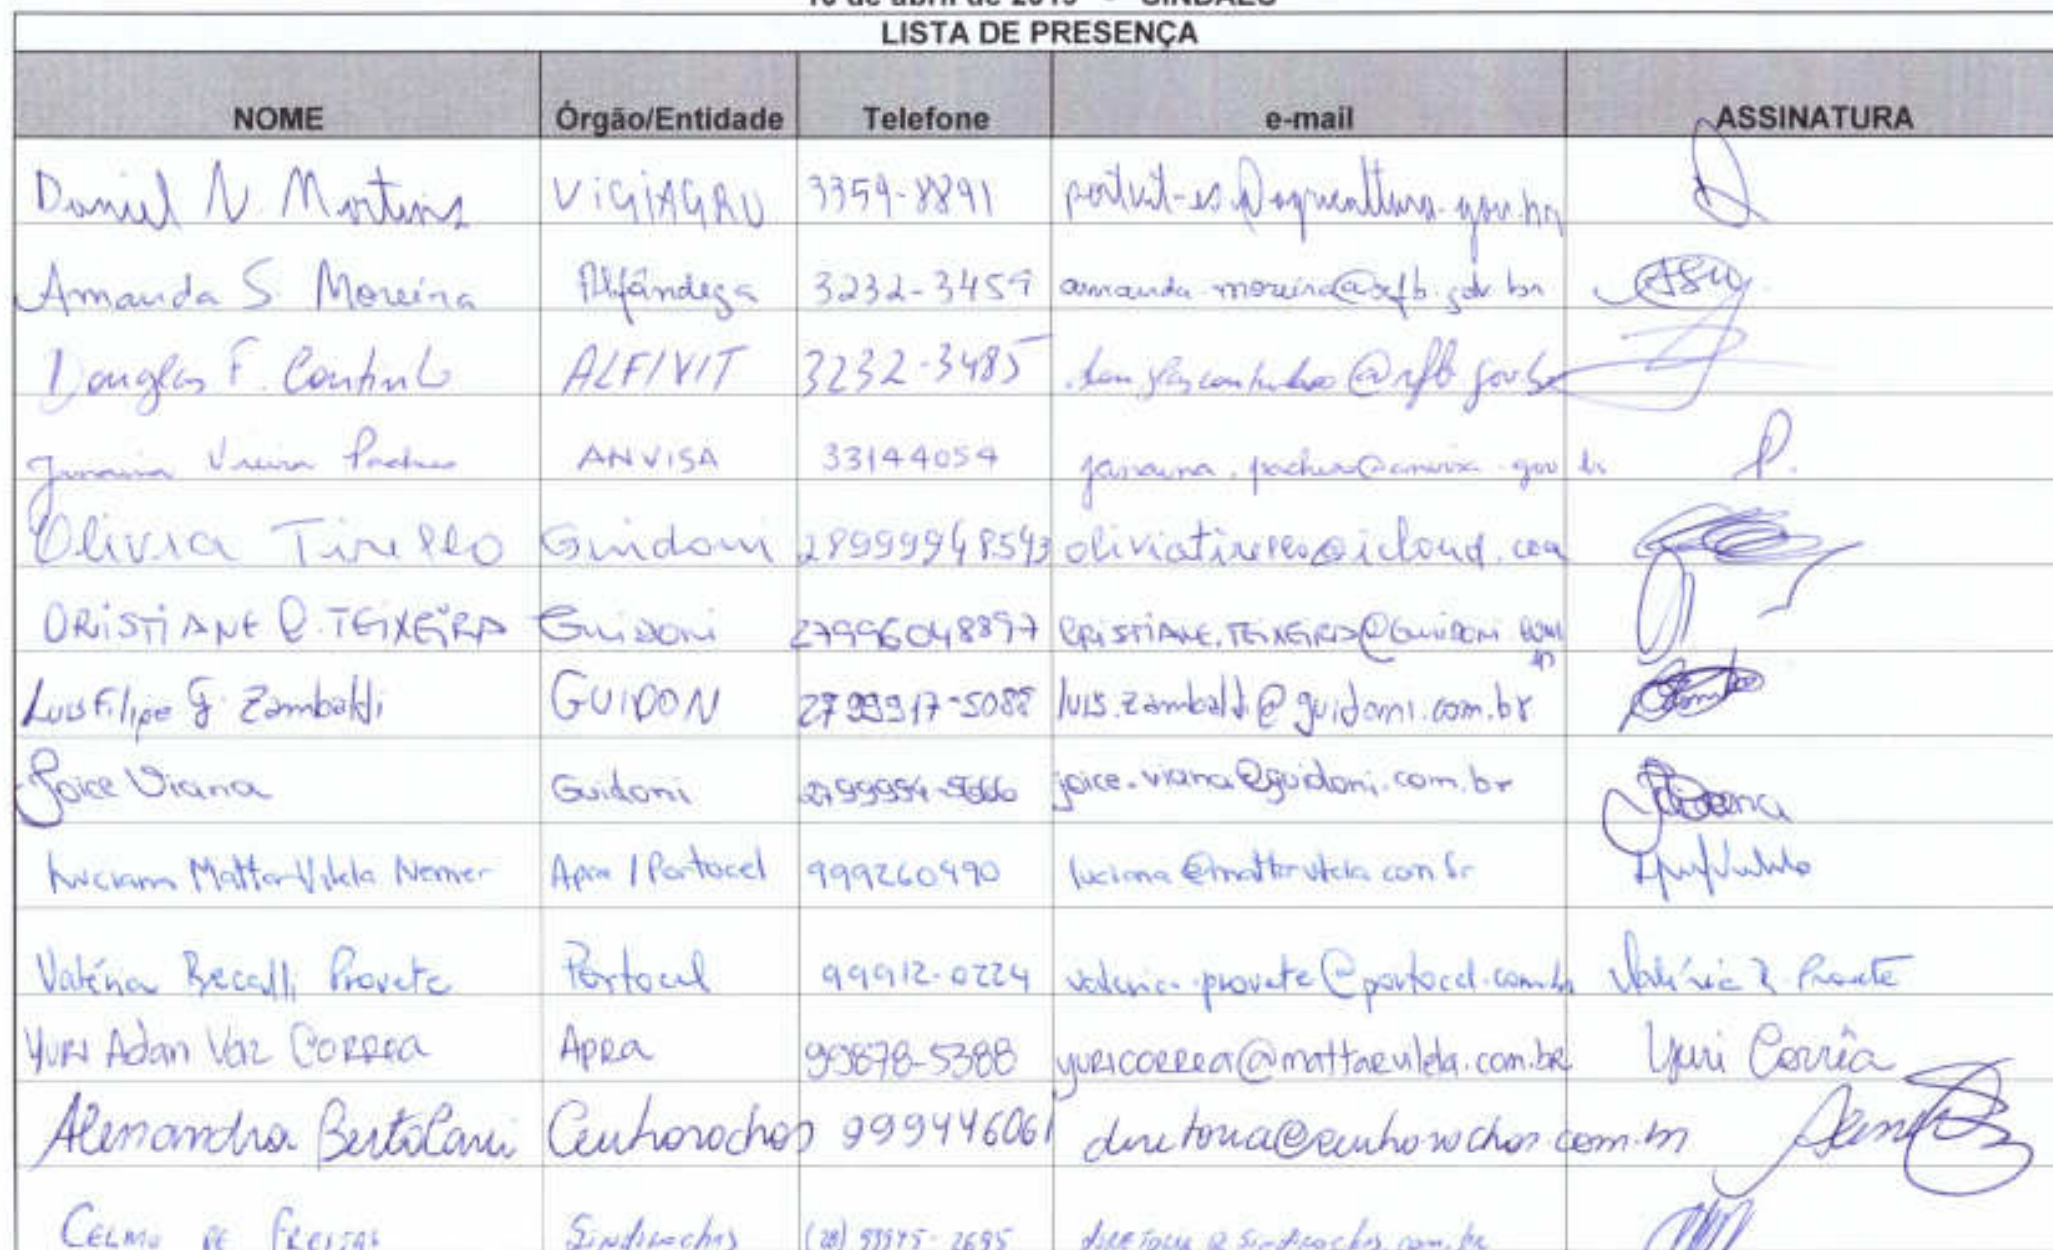 LISTA DE PRESENÇA
NOME Órgão/Entidade Telefone e-mail ASSINATURA
Daniel N. Martins VIGIAGRO 3359-8891 portvit-es@agricultura.gov.br
Amanda S. Moreira Alfândega 3232-3459 amanda.moreira@rfb.gov.br ASM
Douglas F. Coutinho ALF/VIT 3232-3485 douglas.coutinho@rfb.gov.br
Janaina Vieira Pacheco ANVISA 33144054 janaina.pacheco@anvisa.gov.br P.
Olivia Tirello Guidoni 28999948543 oliviatirello@icloud.com
CRISTIANE C. TEIXEIRA Guidoni 27996048897 CRISTIANE.TEIXEIRA@Guidoni.com
Luis Filipe G. Zambaldi GUIDONI 2799917-5088 luis.zambaldi@guidoni.com.br
Joice Viana Guidoni joice.viana@guidoni.com.br
Luciana Mattar Vilela Nemer Apra / Portocel 999260490 luciana@mattarvilela.com.br
Valéria Becalli Provete Portocel 99912-0224 valeria.provete@portocel.com.br Valéria B. Provete
Yuri Adan Vaz CORREA APRA 99878-5388 yuricorrea@mattarvilela.com.br Yuri Corrêa
Alessandra Bertolani Centrorochas 999446061 diretoria@centrorochas.com.br
CELMO DE FREITAS Sindirochas (28) 99975-2695 diretoria@sindirochas.com.br